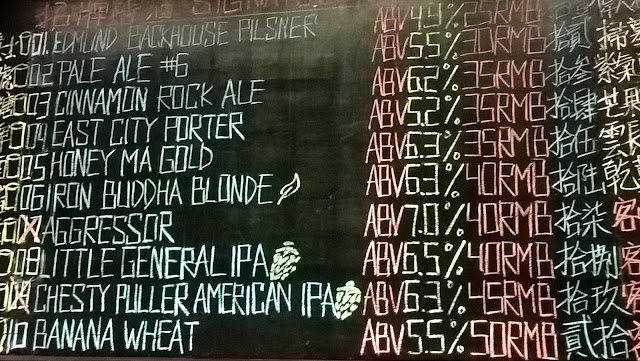 招牌
01. EDMUND BACKHOUSE PILSNER ABV 4.9% 25RMB
02 PALE ALE #6 ABV 5.5% 30RMB 拾貳 掃
03 CINNAMON ROCK ALE ABV 6.2% 35RMB 拾叁 紫氣
04 EAST CITY PORTER ABV 5.2% 35RMB 拾肆 芒果
05 HONEY MA GOLD ABV 6.3% 35RMB 拾伍 雲
06 IRON BUDDHA BLONDE ABV 6.3% 40RMB 拾陸 乾
AGGRESSOR ABV 7.0% 40RMB 拾柒 客
08 LITTLE GENERAL IPA ABV 6.5% 40RMB 拾捌 客
CHESTY PULLER AMERICAN IPA ABV 6.3% 45RMB 拾玖 客
10 BANANA WHEAT ABV 5.5% 50RMB 貳拾